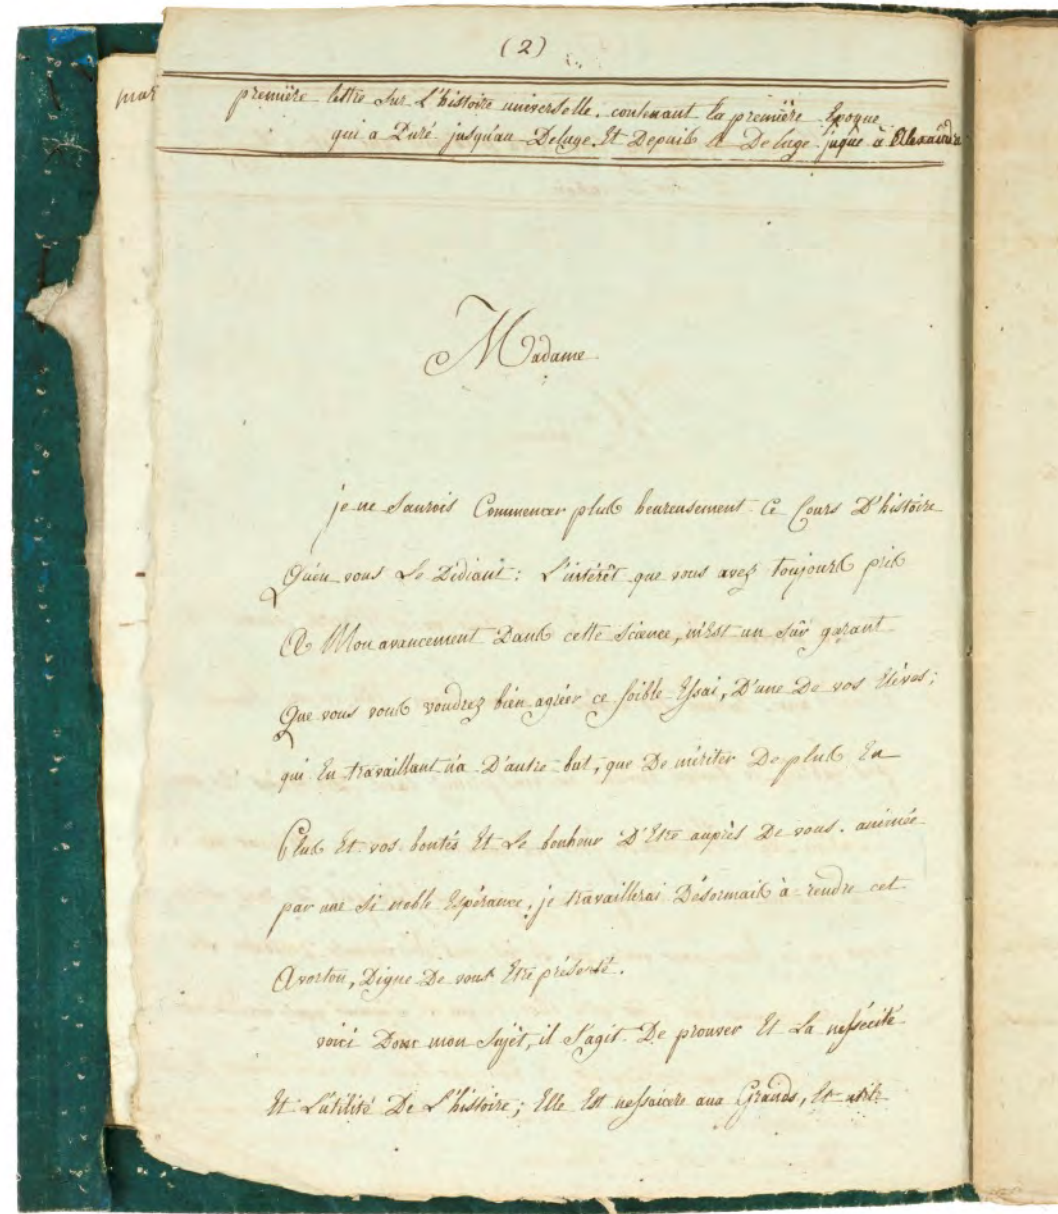 (2)
première lettre sur L'histoire universelle. contenant la première Epoque
qui a Duré jusqu'au Deluge. Et Depuis le Deluge juque à Alexandre
Madame
je ne saurois Commencer plus heureusement Ce Cours D'histoire
Qu'en vous Le Dédiant: L'intérêt que vous avez toujours pris
A Mon avancement Dans cette science, m'est un sûr garant
Que vous vous voudrez bien agréer ce foible Essai, D'une De vos Elèves;
qui En travaillant n'a D'autre but, que De mériter De plus En
Plus Et vos bontés Et Le bonheur D'Etre auprès De vous. animée
par une si noble Espérance, je travaillerai Désormais à rendre cet
Avorton, Digne De vous Etre présenté.
voici Donc mon sujèt, il s'agit De prouver Et La nessécité
Et L'utilité De L'histoire; Elle Est nessaicere aux Grands, Et utile